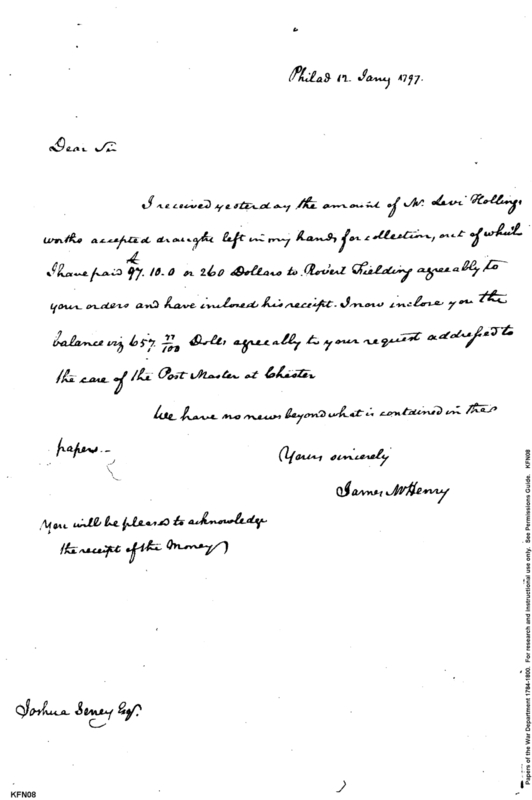 Philad 12. Jany 1797.
Dear Sir
I received yesterday the amount of Mr. Levi Hollings
worths accepted draught left in my hands for collection, out of which
I have paid £97.10.0 or 260 Dollars to Robert Fielding agreeably to
your orders and have inclosed his receipt. I now inclose you the
balance viz 657 77/100 Dolls agreeably to your request addressed to
the care of the Post Master at Chester
We have no news beyond what is contained in the
papers.-
Yours sincerely
James McHenry
You will be pleased to acknowledge
the receipt of the Money
Joshua Seney Esqr.
KFN08
Papers of the War Department 1784-1800. For research and instructional use only. See Permissions Guide. KFN08